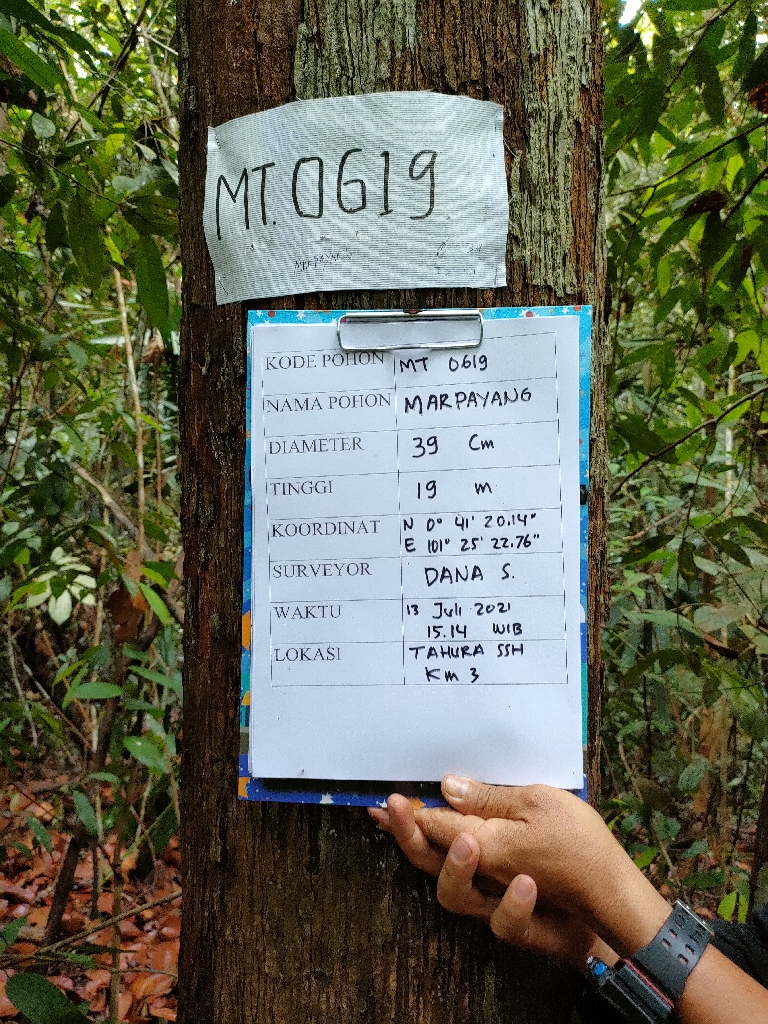 MT. 0619
KODE POHON MT 0619
NAMA POHON MARPAYANG
DIAMETER 39 Cm
TINGGI 19 m
KOORDINAT N 0° 41' 20.14"
E 101° 25' 22.76"
SURVEYOR DANA S.
WAKTU 13 Juli 2021
15.14 WIB
LOKASI TAHURA SSH
Km 3